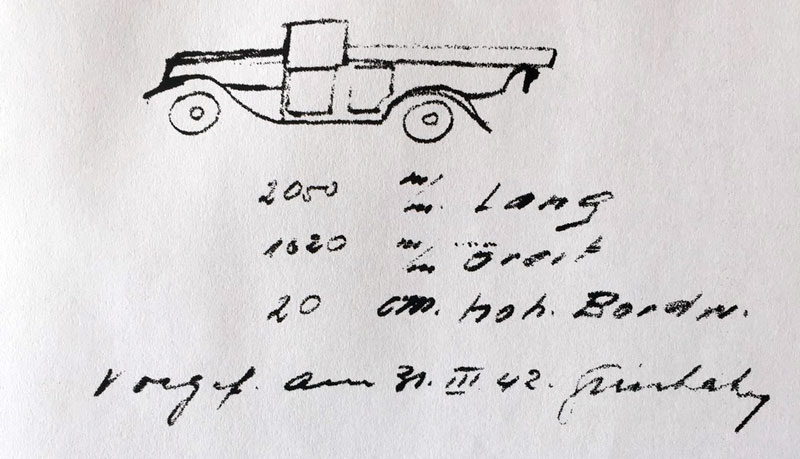 2050 m/m. Lang
1620 m/m breit
20 cm. hoh. Bordw.
Vorgef. am 31. III. 42.